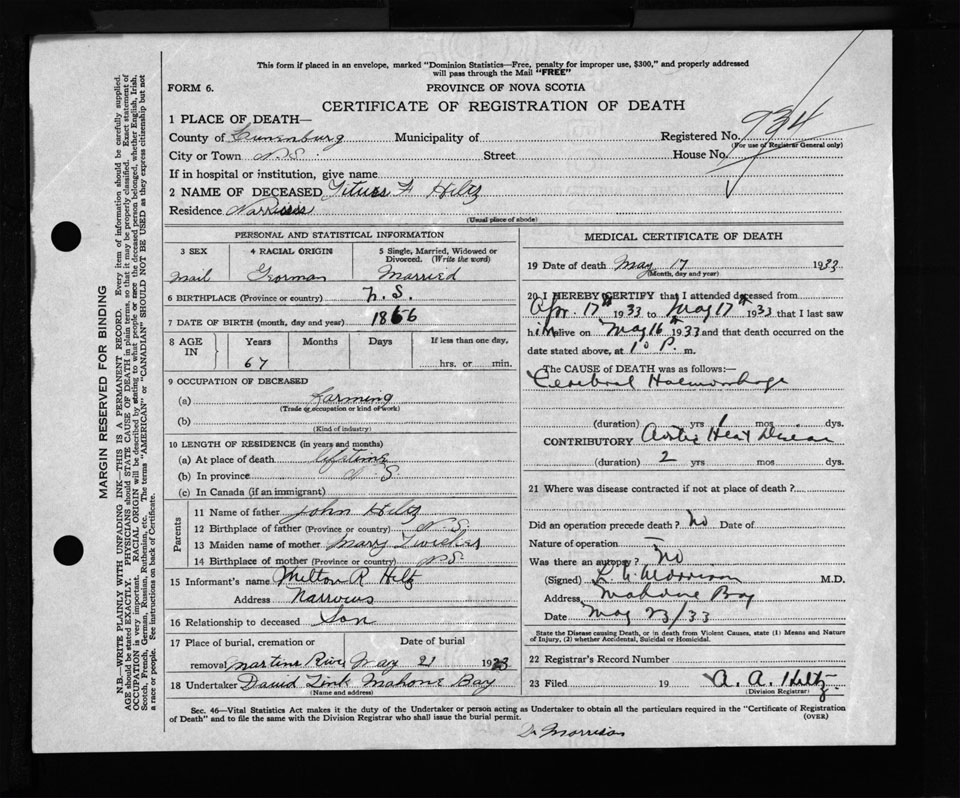 This form if placed in an envelope, marked "Dominion Statistics—Free, penalty for improper use, $300," and properly addressed
will pass through the Mail "FREE"
FORM 6.
PROVINCE OF NOVA SCOTIA
CERTIFICATE OF REGISTRATION OF DEATH
1 PLACE OF DEATH—
County of Lunenburg Municipality of Registered No. 934
(For use of Registrar General only)
City or Town N.S. Street House No.
If in hospital or institution, give name
2 NAME OF DECEASED Titus F Hiltz
Residence
(Usual place of abode)
PERSONAL AND STATISTICAL INFORMATION
3 SEX 4 RACIAL ORIGIN 5 Single, Married, Widowed or
Divorced. (Write the word)
Male German Married
6 BIRTHPLACE (Province or country) N.S.
7 DATE OF BIRTH (month, day and year) 1866
8 AGE IN Years Months Days If less than one day,
67 hrs. or min.
9 OCCUPATION OF DECEASED
(a) Farming
(Trade or occupation or kind of work)
(b)
(Kind of industry)
10 LENGTH OF RESIDENCE (in years and months)
(a) At place of death lifetime
(b) In province N.S.
(c) In Canada (if an immigrant)
Parents
11 Name of father John Hiltz
12 Birthplace of father (Province or country) N.S.
13 Maiden name of mother Mary
14 Birthplace of mother (Province or country) N.S.
15 Informant's name Milton R Hiltz
Address Narrows
16 Relationship to deceased Son
17 Place of burial, cremation or Date of burial
removal Martins River May 21 1933
18 Undertaker David Mahone Bay
(Name and address)
MEDICAL CERTIFICATE OF DEATH
19 Date of death May 17 1933
(Month, day and year)
20 I HEREBY CERTIFY that I attended deceased from
Apr. 17th 1933 to May 17th 1933 that I last saw
him alive on May 16th 1933 and that death occurred on
date stated above, at P. m.
The CAUSE OF DEATH was as follows:—
Cerebral Haemorrhage
(duration) yrs 1 mos dys.
CONTRIBUTORY Aortic Heart Disease
(duration) 2 yrs mos dys.
21 Where was disease contracted if not at place of death?
Did an operation precede death? No Date of
Nature of operation —
Was there an autopsy? No
(Signed) Morrison M.D.
Address Mahone Bay
Date May 23/33
State the Disease causing Death, or in death from Violent Causes, state (1) Means and Nature
of Injury, (2) whether Accidental, Suicidal or Homicidal.
22 Registrar's Record Number
23 Filed 19 A. A. Hiltz
(Division Registrar)
Sec. 46—Vital Statistics Act makes it the duty of the Undertaker or person acting as Undertaker to obtain all the particulars required in the "Certificate of Registration
of Death" and to file the same with the Division Registrar who shall issue the burial permit. (OVER)
Dr Morrison
MARGIN RESERVED FOR BINDING
N.B.—WRITE PLAINLY WITH UNFADING INK—THIS IS A PERMANENT RECORD. Every item of information should be carefully supplied.
AGE should be stated EXACTLY. PHYSICIANS should STATE CAUSE OF DEATH in plain terms, so that it may be properly classified. Exact statement of
OCCUPATION is very important. RACIAL ORIGIN will be described by stating to what people or race the deceased person belonged, whether English, Irish,
Scotch, French, German, Russian, Ruthenian, etc. The terms "AMERICAN" or "CANADIAN" SHOULD NOT BE USED as they express citizenship but not
a race or people. See instructions on back of Certificate.